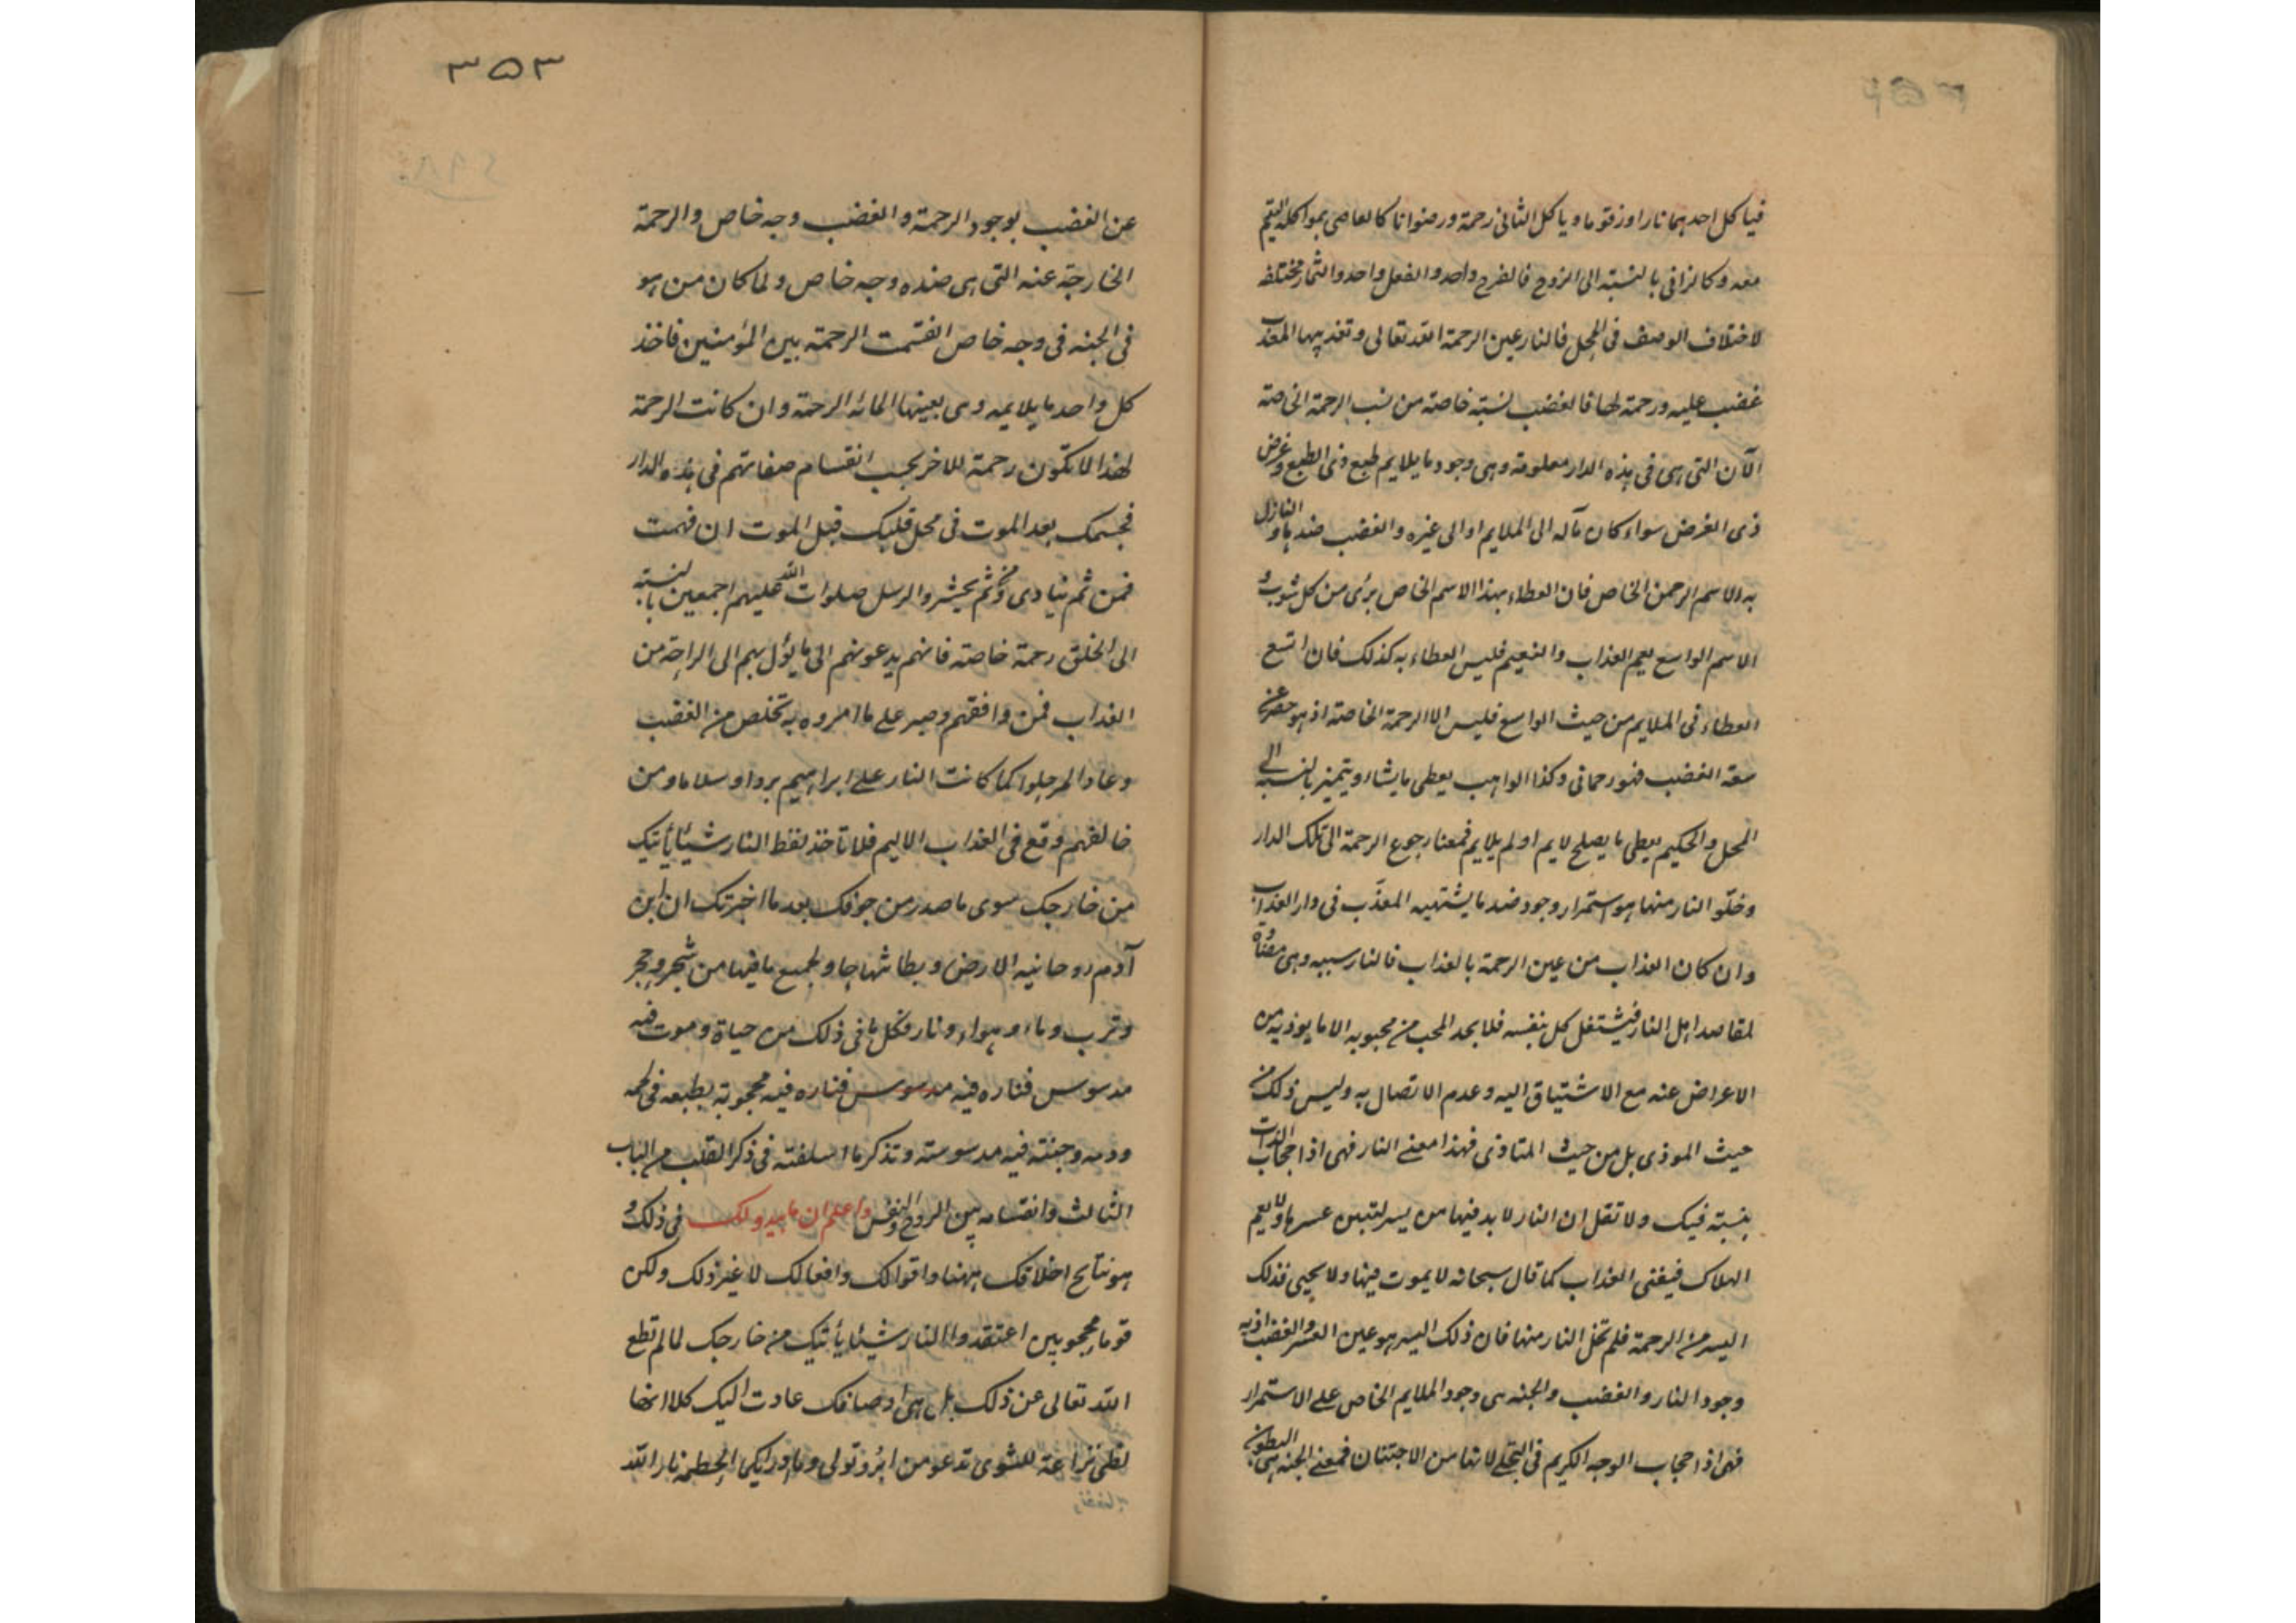 فياكل احدهما نارا وزقوما وياكل الثانى رحمة ورضوانا كالعاصى بمواكلة اليتيم
معه وكالزانى بالنسبة الى الزوج فالفرج واحد والفعل واحد والثمار مختلفه
لاختلاف الوصف فى المحل فالنار عين الرحمة الله تعالى وتعذيبها المعذب
غضب عليه ورحمة لها فالغضب نسبته خاصته من نسب الرحمة الخاصة
الآن التى هى فى هذه الدار معلومة وهى وجود ما يلايم طبع ذى الطبع وغرض
ذى الغرض سواء كان مآله الى الملايم او الى غيره والغضب ضدها والنازل
به الاسم الرحمن الخاص فان العطاء بهذا الاسم الخاص برئ من كل شوب و
الاسم الواسع يعم العذاب والنعيم فليس العطاء به كذلك فان اتسع
العطاء فى الملايم من حيث الواسع فليس الا الرحمة الخاصة اذ هو حضر عن
سعة الغضب فهو رحمانى وكذا الواهب يعطى ما يشاء ويتميز بالنسبة الى
المحل والحكيم يعطى ما يصلح لايم او لم يلايم فمعنا رجوع الرحمة الى تلك الدار
وخلّو النار منها هو استمرار وجود ضد ما يشتهيه المعذّب فى دار العذاب
وان كان العذاب من عين الرحمة بالعذاب فالنار سببه وهى
لمقاصد اهل النار فيشتغل كل بنفسه فلا يجد المحب من محبوبه الا ما يوذيه من
الاعراض عنه مع الاشتياق اليه وعدم الاتصال به وليس ذلك من
حيث الموذى بل من حيث المتاذى فهذا معنى النار فهى اذا حجاب الذات
بنسبته فيك ولا تقل ان النار لا بد فيها من يسر لتبين عسرها ولا يعم
الهلاك فيفنى العذاب كما قال سبحانه لا يموت فيها ولا يحيى فذلك
اليسر من الرحمة فلم تخل النار منها فان ذلك اليسر هو عين العسر والغضب اذ به
وجود النار والغضب والجنة هى وجود الملايم الخاص على الاستمرار
فهى اذا حجاب الوجه الكريم فى التجلى لانها من الاجتنان فمعنى الجنة هى البطون
٣٥٣
عن الغضب بوجود الرحمة والغضب وجه خاص والرحمة
الخارجة عنه التى هى ضده وجه خاص ولما كان من هو
فى الجنه فى وجه خاص انقسمت الرحمة بين المؤمنين فاخذ
كل واحد ما يلايمه وهى بعينها المائة الرحمة وان كانت الرحمة
لهذا لا تكون رحمة للاخر بحسب انقسام صفاتهم فى هذه الدار
فجسمك بعد الموت فى محل قلبك قبل الموت ان فهمت
فمن ثم ينادى ومن ثم يحشر والرسل صلوات الله عليهم اجمعين بالنسبة
الى الخلق رحمة خاصته فانهم يدعونهم الى ما يؤل بهم الى الراحة من
العذاب فمن وافقهم وصبر على ما امروه به تخلص من الغضب
وعاد المر حلوا كما كانت النار على ابراهيم بردا وسلاما ومن
خالفهم وقع فى العذاب الاليم فلا تأخذ لفظ النار شيئا يأتيك
من خارجك سوى ما صدر من جوفك بعد ما اخبرتك ان ابن
آدم روحانيه الارض وبطانتها جاو لجميع ما فيها من شجر وحجر
وترب وماء وهواء ونار فكل ما فى ذلك من حياة وموت فيه
مدسوس فناره فيه مدسوس فناره فيه محجوبة بطبعه فى لحمه
ودمه وجنته فيه مدسوسته وتذكر ما اسلفته فى ذكر القلب من الباب
الثالث وانقسامه بين الروح والنفس واعلم ان ما يبدو لك فى ذلك و
هو نتايج اخلاقك ههنا واقوالك وافعالك لا غير ذلك ولكن
قوما محجوبين اعتقدوا النار شيئا يأتيك من خارجك لما لم تطع
الله تعالى عن ذلك بل هى اوصافك عادت اليك كلا انها
لظى نزاعة للشوى تدعو من ادبر وتولى وما ادراك ما الحطمة نار الله